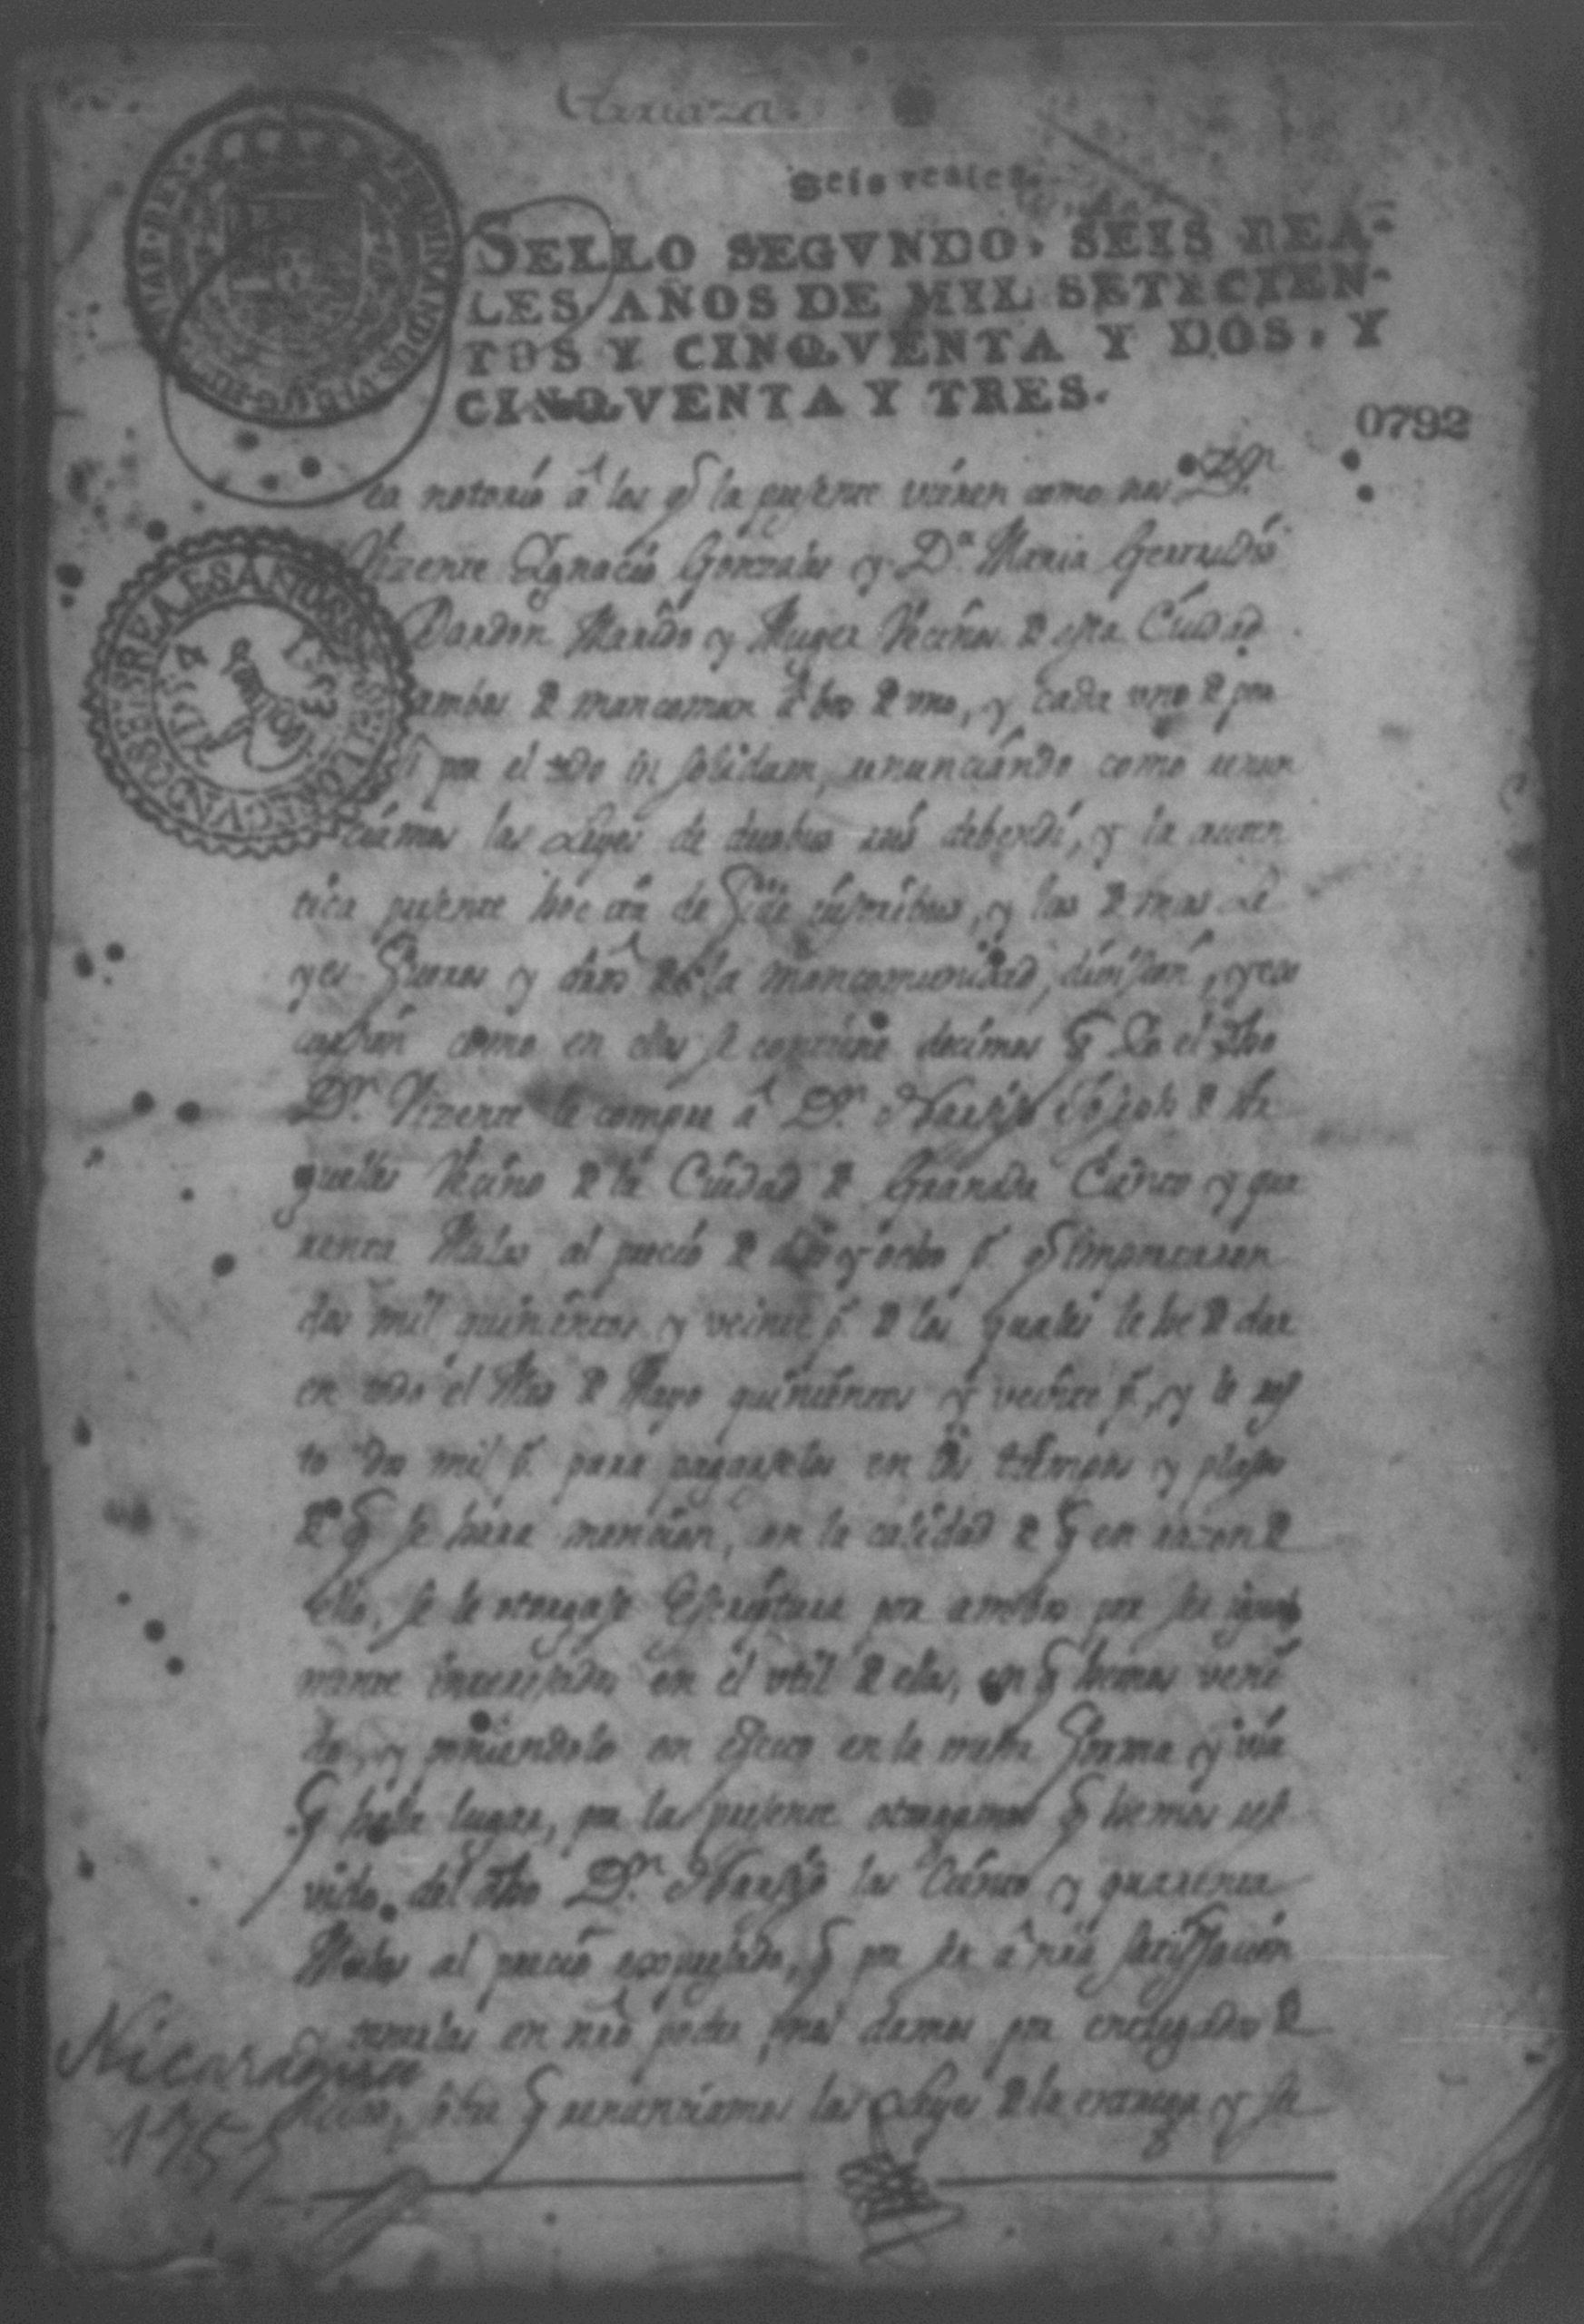 Arriaza.
Seis reales.
SELLO SEGVNDO, SEIS REA-
LES, AÑOS DE MIL SETECIEN-
TOS Y CINQVENTA Y DOS, Y
CINQVENTA Y TRES.
0792
ea notorio â los q̃ la presente vieren como nos Dn.
Vizente Ygnacio Gonzales y Da. Maria Gertrudis
Dardon Marido y Muger Vecinos de esta Ciudad
ambos de mancomun â bos de uno, y cada uno de por
si por el todo in solidum, renunciando como renun
ciamos las Leyes de duobus reis debendi, y la auten
tica presente hoc ita de fide iusoribus, y las demas Le
yes fueros y dros de la mancomunidad, division, y ex
cursion como en ellas se contiene decimos q̃ Yo el dho
Dn. Vizente le compre â Dn. Narciso de Ar
guellas Vecino de la Ciudad de Granada Ciento y qua
renta Mulas al precio de diez y ocho ps. q̃ importaron
dos mil quinientos y veinte ps. de los quales le he de dar
en todo el Mes de Mayo quinientos y veinte ps., y le res
to dos mil ps. para pagarselos en los tiempos y plasos
de q̃ se hara mencion, en la calidad de q̃ en razon de
ello, se le otorgase Escriptura por ambos por ser igual
mente interesados en el util de ellas, en q̃ hemos veni
do, y poniendolo en efecto en la mejor forma y via
q̃ haya lugar, por la presente otorgamos q̃ hemos resi
vido del dho Dn. Narciso las Ciento y quarenta
Mulas al precio expresado, q̃ por ser â nra satisfacion
y tenerlas en nro poder, nos damos por entregados de
ellas, sobre q̃ renunciamos las Leyes de la entrega y se
Nicaragua
1755